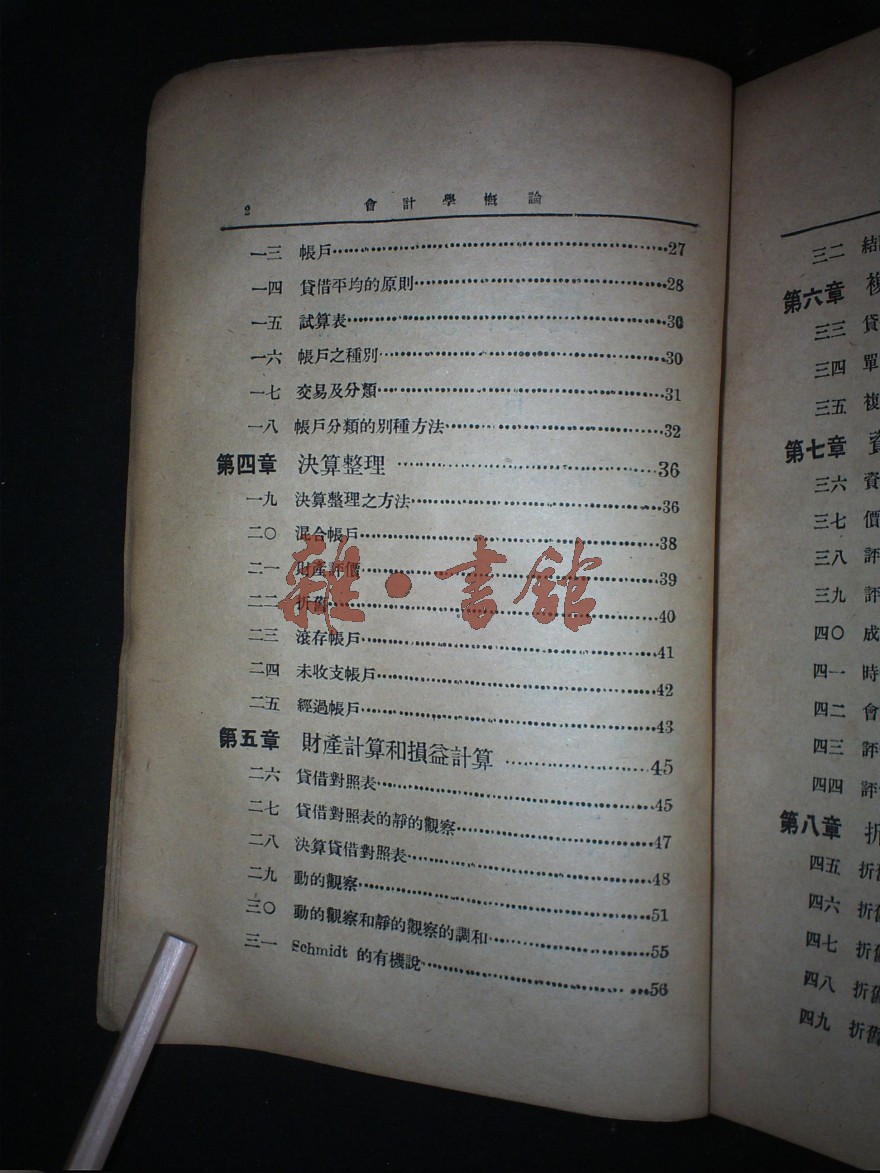 2 會計學概論
一三 帳戶 27
一四 貸借平均的原則 28
一五 試算表 30
一六 帳戶之種別 30
一七 交易及分類 31
一八 帳戶分類的別種方法 32
第四章 決算整理 36
一九 決算整理之方法 36
二〇 混合帳戶 38
二一 財產評價 39
二二 折舊 40
二三 滾存帳戶 41
二四 未收支帳戶 42
二五 經過帳戶 43
第五章 財產計算和損益計算 45
二六 貸借對照表 45
二七 貸借對照表的靜的觀察 47
二八 決算貸借對照表 48
二九 動的觀察 51
三〇 動的觀察和靜的觀察的調和 55
三一 Schmidt 的有機說 56
雜·書館
三二 結
第六章
三三 貸
三四 單
三五 複
第七章
三六 資
三七 價
三八 評
三九 評
四〇 成
四一 時
四二 會
四三 評
四四 評
第八章 折
四五 折舊
四六 折
四七 折舊
四八 折舊
四九 折舊